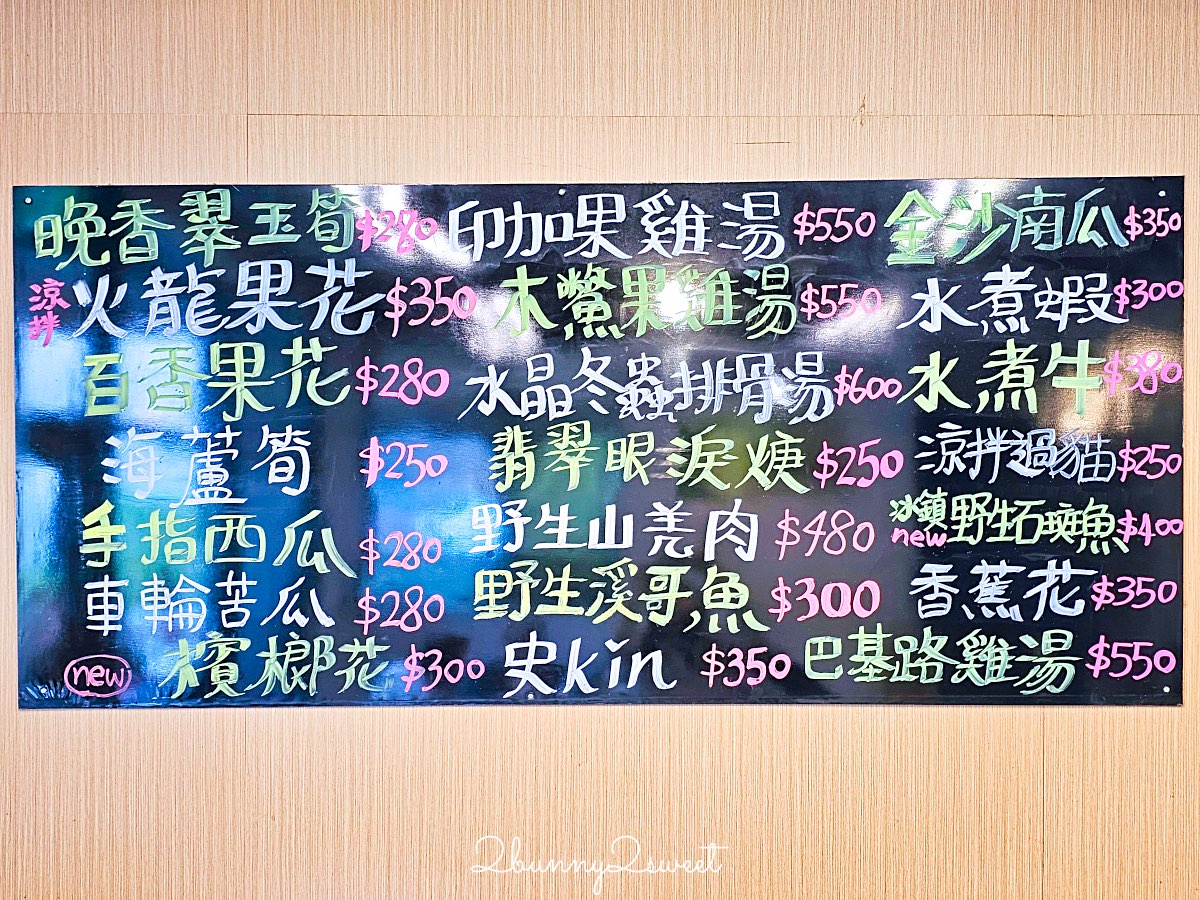 晚香翠玉筍 $280
涼拌 火龍果花 $350
百香果花 $280
海蘆筍 $250
手指西瓜 $280
車輪苦瓜 $280
new 檳榔花 $300
印加果雞湯 $550
木鱉果雞湯 $550
水晶冬蟲排骨湯 $600
翡翠眼淚 $250
野生山羌肉 $480
野生溪哥魚 $300
史kin $350
金沙南瓜 $350
水煮蝦 $300
水煮牛 $380
涼拌過貓 $250
冰鎮 new 野生石斑魚 $400
香蕉花 $350
巴基路雞湯 $550
2bunny2sweet